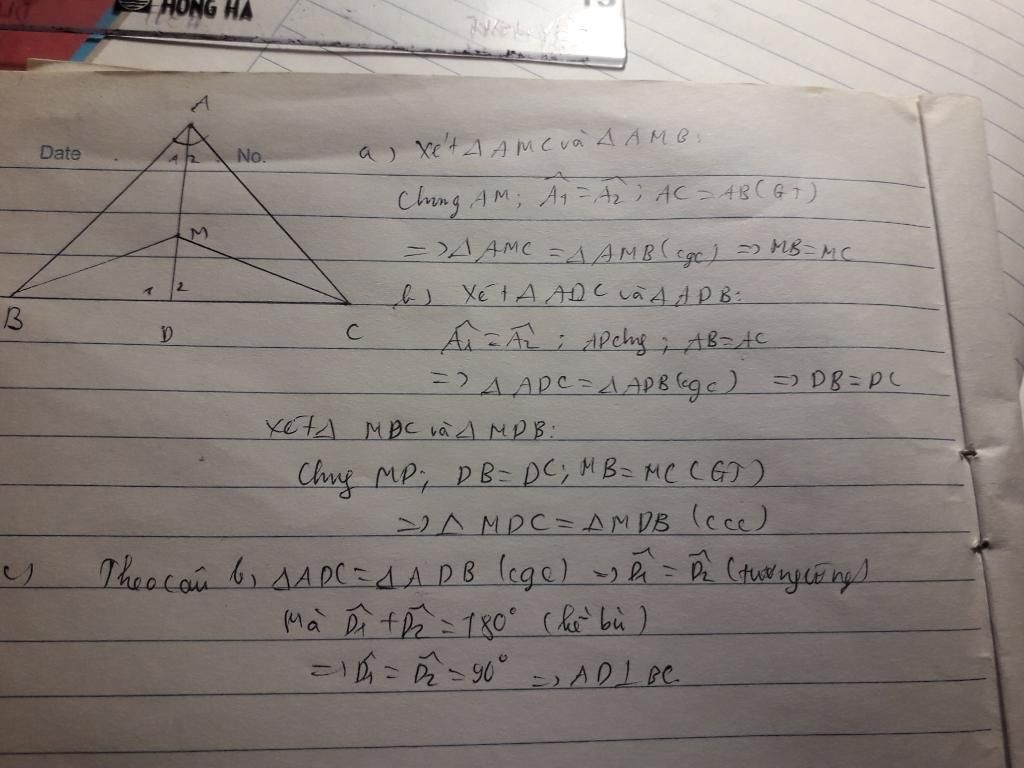 HỒNG HÀ
Date
No.
A
1 2
M
1 2
B
D
C
a) Xét Δ AMC và Δ AMB:
Chung AM; Â1 = Â2; AC = AB (GT)
=> Δ AMC = Δ AMB (cgc) => MB = MC
b) Xét Δ ADC và Δ ADB:
Â1 = Â2; AD chg; AB = AC
=> Δ ADC = Δ ADB (cgc) => DB = DC
Xét Δ MDC và Δ MDB:
Chng MD; DB = DC; MB = MC (GT)
=> Δ MDC = Δ MDB (ccc)
c) Theo câu b, Δ ADC = Δ ADB (cgc) => D̂1 = D̂2 (tương ứng)
Mà D̂1 + D̂2 = 180° (kề bù)
=> D̂1 = D̂2 = 90° => AD ⊥ BC